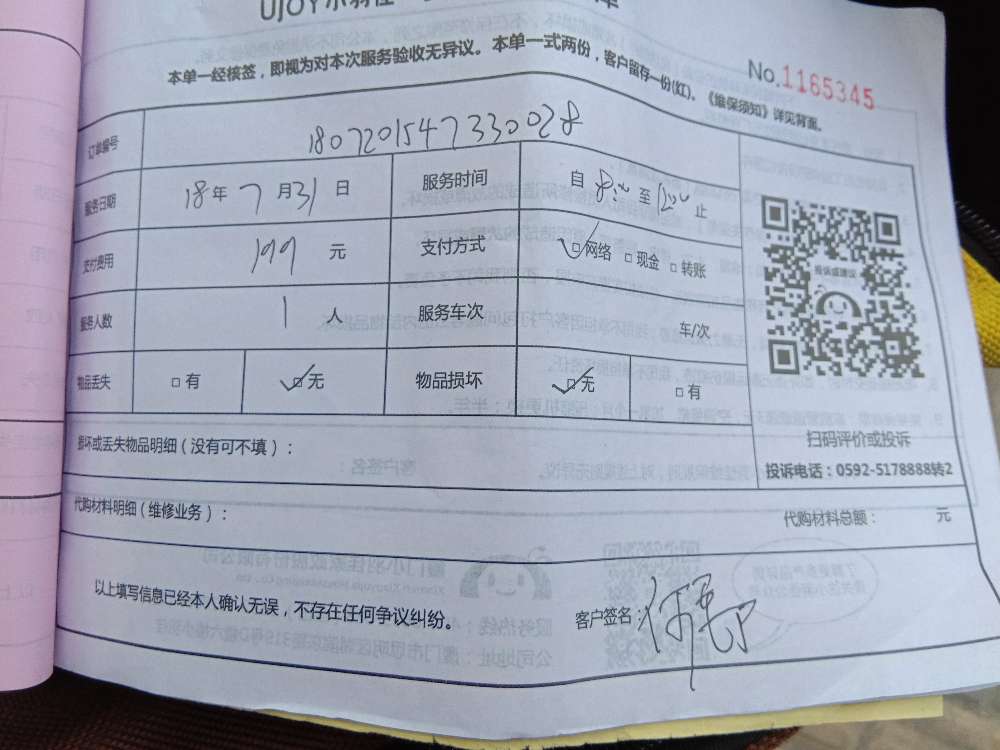 UJOY小羽佳
本单一经核签，即视为对本次服务验收无异议。本单一式两份，客户留存一份(红)。《维保须知》详见背面。
No.1165345
订单编号 180720154733028
服务日期 18年7月31日 服务时间 自8:00至12:00止
支付费用 199元 支付方式 ☑网络 □现金 □转账
服务人数 1人 服务车次 车/次
物品丢失 □有 ☑无 物品损坏 ☑无 □有
投诉或建议
扫码评价或投诉
投诉电话：0592-5178888转2
损坏或丢失物品明细（没有可不填）：
代购材料明细（维修业务）： 代购材料总额： 元
以上填写信息已经本人确认无误，不存在任何争议纠纷。 客户签名：